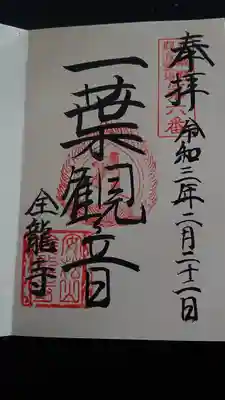 奉拝
令和三年二月二十二日
一葉観音
全龍寺